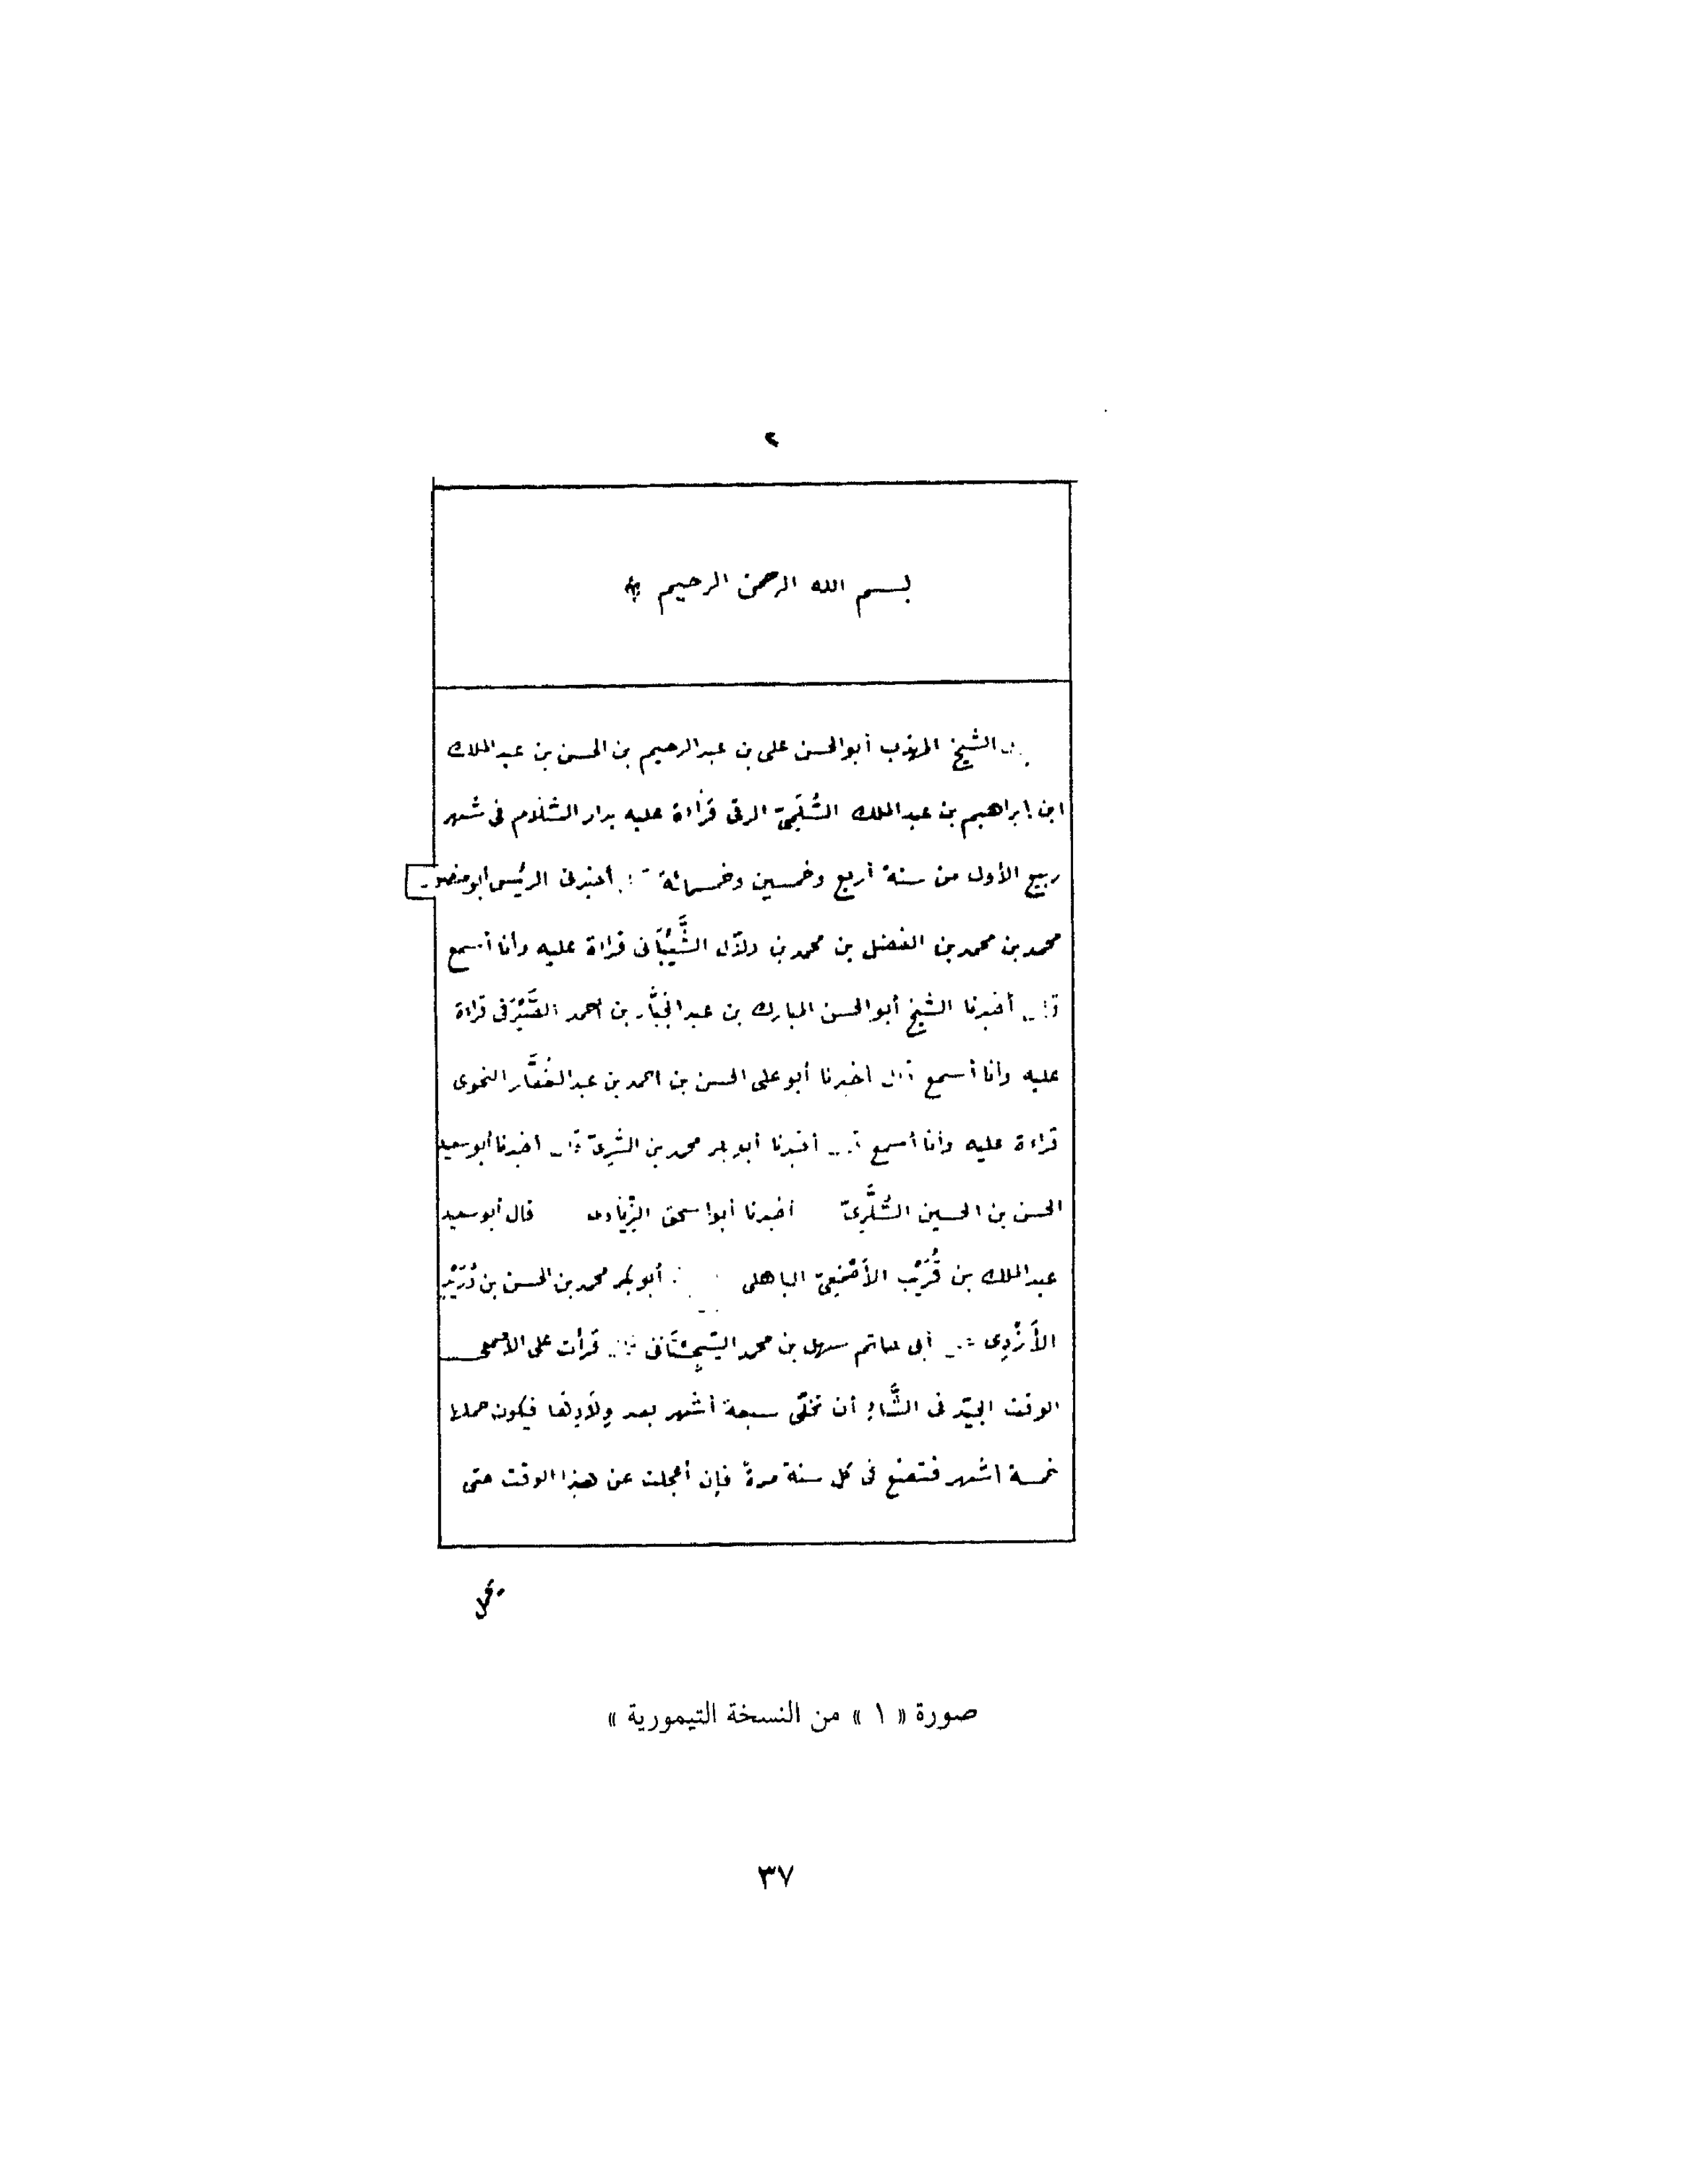 ٢
بسم الله الرحمن الرحيم
الشيخ المهذب أبو الحسن على بن عبد الرحيم بن الحسن بن عبد الملك
ابن ابراهيم بن عبد الملك السُّلَمِيّ الرقى قرأءة عليه بدار السَّلام فى شهر
ربيع الأول من سنة أربع وخمسين وخمسمائة أخبرنى الرئيس أبو منصور
محمد بن محمد بن الفضل بن محمد بن دلال الشَّيْبَانى قراءة عليه وأنا أسمع
أخبرنا الشيخ أبو الحسن المبارك بن عبد الجَبَّار بن أحمد الصَّيْرَفى قراءة
عليه وأنا أسمع قال اخبرنا أبو على الحسن بن احمد بن عبد الغَفَّار النحوى
قراءة عليه وأنا أسمع أخبرنا أبو بكر محمد بن السَّرِىّ اخبرنا أبو سعيد
الحسن بن الحسين السُّكَّرِىّ أخبرنا أبو اسحق الزِّيَادى قال أبو سعيد
عبد الملك بن قُرَيْب الأَصْمَعِىّ الباهلى أبو بكر محمد بن الحسن بن دُرَيْدٍ
الأَزْدِى أبى حاتم سهل بن محمد السِّجِسْتَانى قرأت على الاصمعى
الوقت الجيّد فى الشَّاءِ أن تخلّى سبعة أشهر بعد وِلَادِهَا فيكون حملها
خمسة اشهر فتضع فى كل سنة مرةً فإن أعجلت عن هذا الوقت حتى
صورة « ١ » من النسخة التيمورية »
٣٧